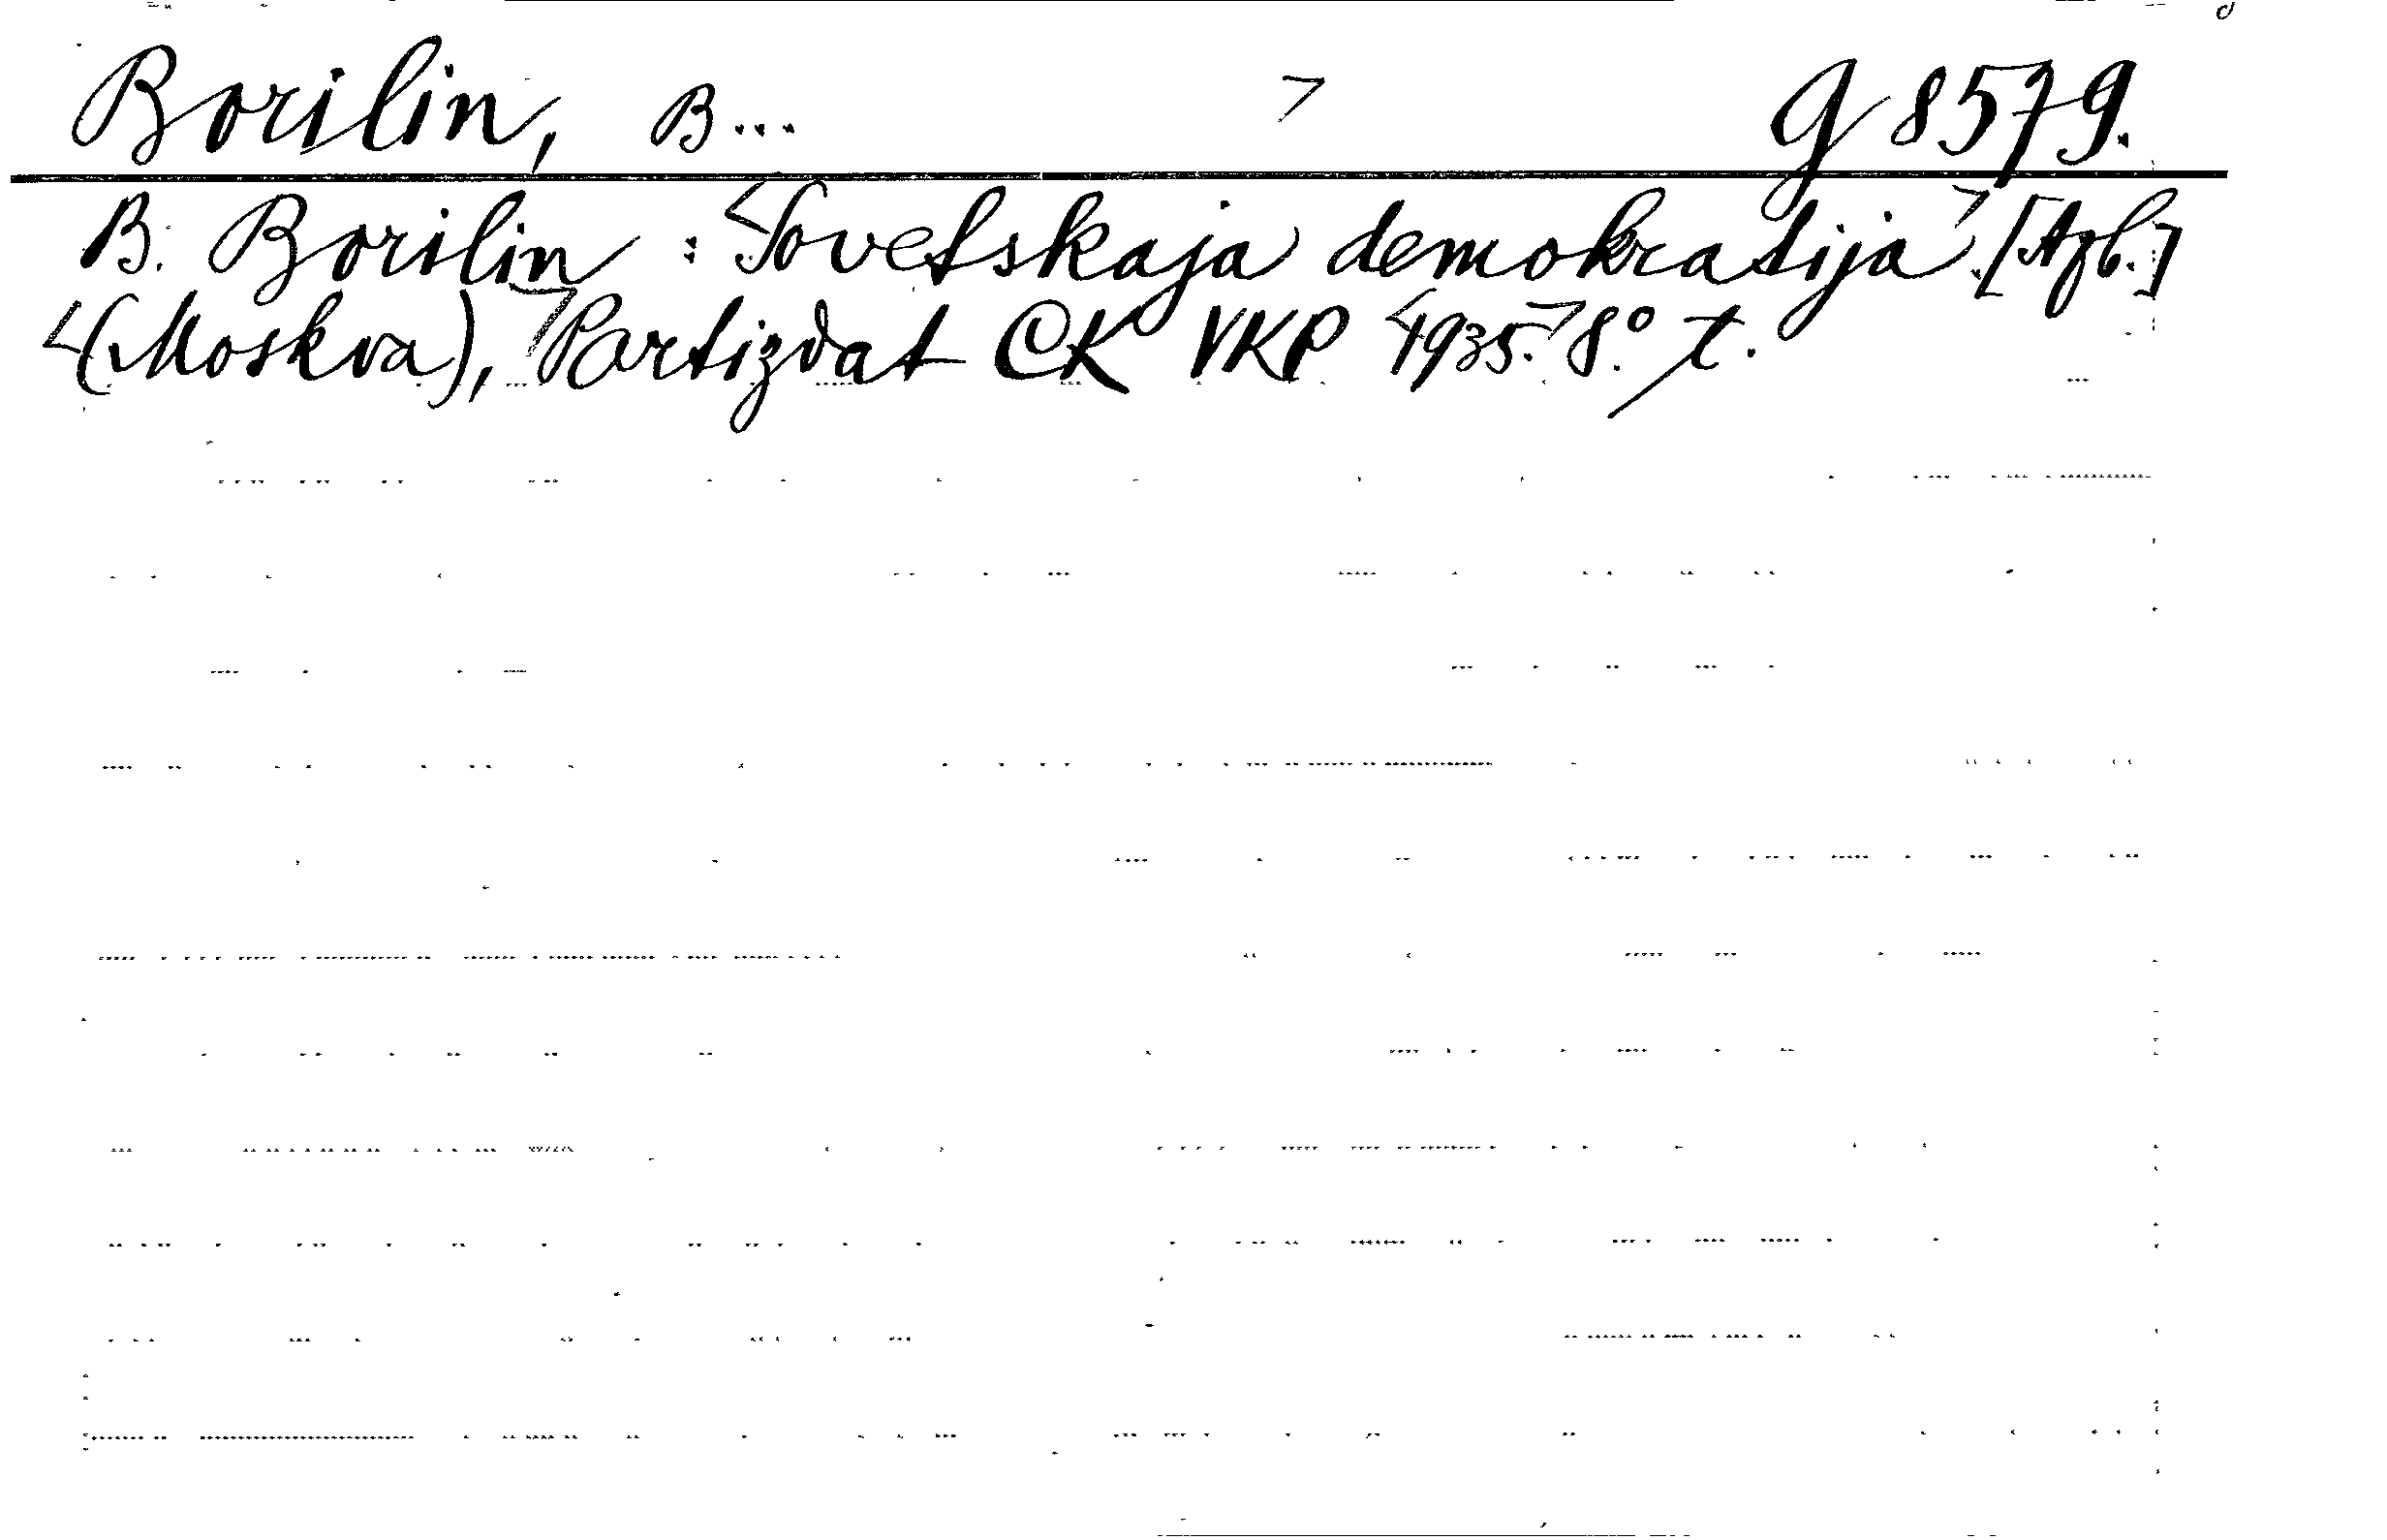 Borilin, B... > G 8579.
B. Borilin : <Sovetskaja demokratija>. [Afb.]
<(Moskva), > Partizdat CK VKP <1935.> 8.° t.